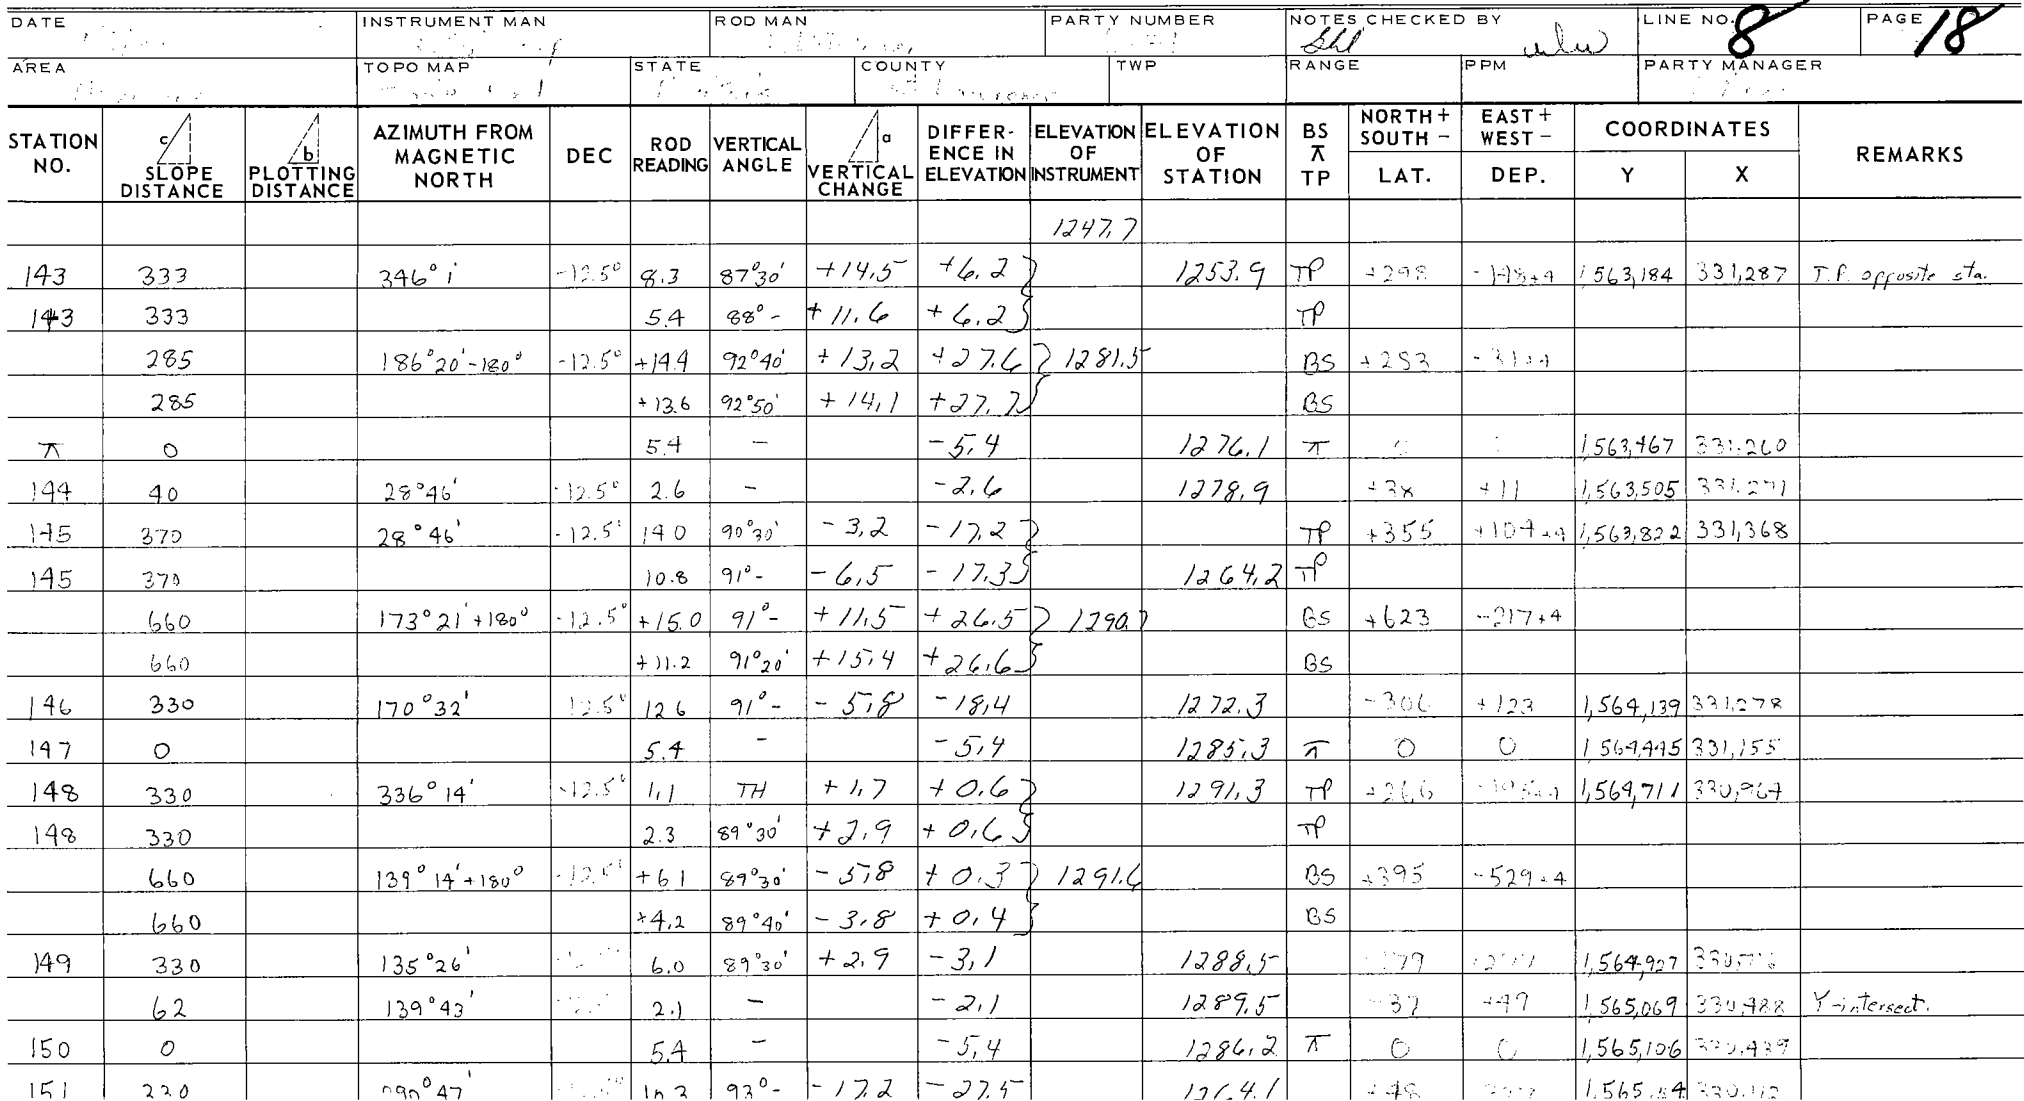 DATE INSTRUMENT MAN ROD MAN PARTY NUMBER NOTES CHECKED BY LINE NO. 8 PAGE 18
AREA TOPO MAP STATE COUNTY TWP RANGE PPM PARTY MANAGER
STATION NO. c SLOPE DISTANCE b PLOTTING DISTANCE AZIMUTH FROM MAGNETIC NORTH DEC ROD READING VERTICAL ANGLE a VERTICAL CHANGE DIFFERENCE IN ELEVATION ELEVATION OF INSTRUMENT ELEVATION OF STATION BS ⊼ TP NORTH + SOUTH - LAT. EAST + WEST - DEP. COORDINATES Y X REMARKS
1247.7
143 333 346°1' -12.5° 8.3 87°30' +14.5 +6.2 1253.9 TP +298 1,563,184 331,287 T.P. opposite sta.
143 333 5.4 88°- +11.6 +6.2 TP
285 186°20'-180° -12.5° +14.4 92°40' +13.2 +27.6 1281.5 BS +283 -31+4
285 +13.6 92°50' +14.1 +27.7 BS
⊼ 0 5.4 - -5.4 1276.1 ⊼ 1,563,467 331,260
144 40 28°46' -12.5° 2.6 - -2.6 1278.9 +38 +11 1,563,505 331,271
145 370 28°46' -12.5° 14.0 90°30' -3.2 -17.2 TP +355 +104+4 1,563,822 331,368
145 370 10.8 91°- -6.5 -17.3 1264.2 TP
660 173°21'+180° -12.5° +15.0 91°- +11.5 +26.5 1290.7 BS +623 -217+4
660 +11.2 91°20' +15.4 +26.6 BS
146 330 170°32' 12.5° 12.6 91°- -5.8 -18.4 1272.3 -306 +123 1,564,139 331,278
147 0 5.4 - -5.4 1285.3 ⊼ 0 0 1,564,445 331,155
148 330 336°14' -12.5° 1.1 TH +1.7 +0.6 1291.3 TP +266 1,564,711 330,964
148 330 2.3 89°30' +2.9 +0.6 TP
660 139°14'+180° -12.5° +6.1 89°30' -5.8 +0.3 1291.6 BS +395 -529+4
660 +4.2 89°40' -3.8 +0.4 BS
149 330 135°26' 6.0 89°30' +2.9 -3.1 1288.5 1,564,927
62 139°43' 2.1 - -2.1 1289.5 -37 +49 1,565,069 330,488 Y-intersect.
150 0 5.4 - -5.4 1286.2 ⊼ 0 0 1,565,106 330,439
151 93°- -17.2 -27.5 1264.1